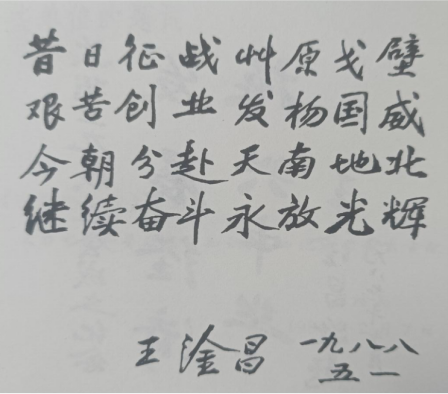 昔日征战艸原戈壁
艰苦创业发杨国威
今朝分赴天南地北
继续奋斗永放光辉
王淦昌 一九八八
五一